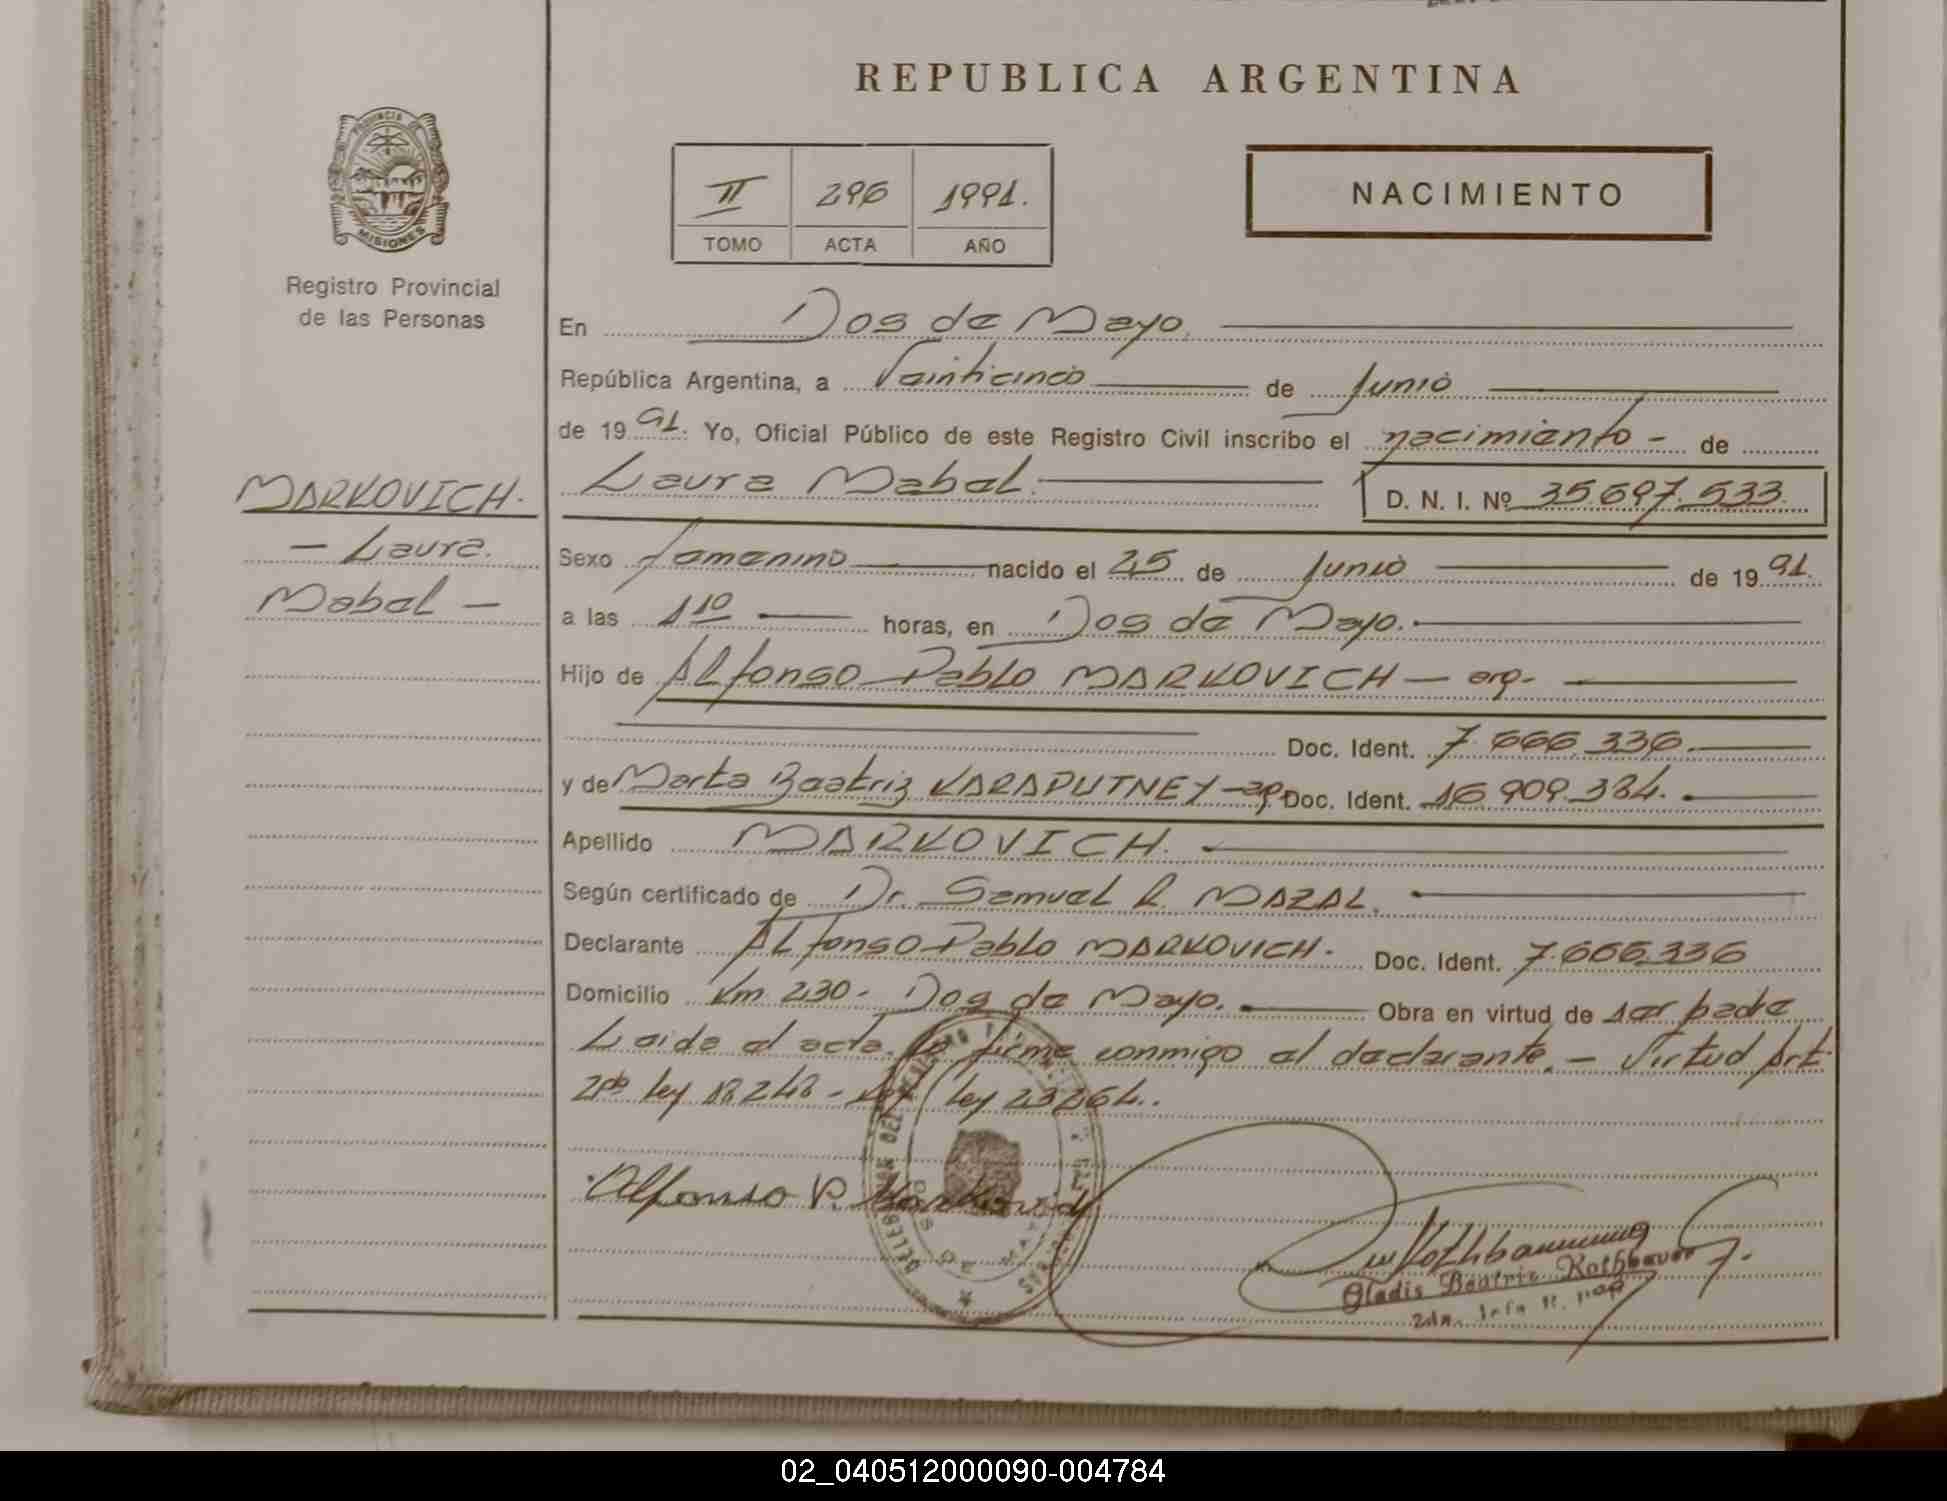 REPUBLICA ARGENTINA
PROVINCIA DE
MISIONES
Registro Provincial
de las Personas
II 296 1991.
TOMO ACTA AÑO
NACIMIENTO
En Dos de Mayo.
República Argentina, a Veinticinco de Junio
de 1991. Yo, Oficial Público de este Registro Civil inscribo el nacimiento - de
Laura Mabel. D. N. I. Nº 35697.533.
MARKOVICH.
- Laura.
Mabel -
Sexo femenino nacido el 25 de Junio de 1991.
a las 1 10 horas, en Dos de Mayo.
Hijo de Alfonso Pablo MARKOVICH - arg.
Doc. Ident. 7.666.336.
y de Marta Beatriz KARAPUTNEY - ap. Doc. Ident. 16.909.384.
Apellido MARKOVICH.
Según certificado de Dr. Samuel R. MAZAL.
Declarante Alfonso Pablo MARKOVICH. Doc. Ident. 7.666.336
Domicilio Km 230 - Dos de Mayo. Obra en virtud de ser padre
Leida el acta, la firma conmigo el declarante. - Virtud Art.
2do ley 18.248 - ley 23264.
Alfonso P. Markovich
DOS DE MAYO
Gladis Beatriz Rothbauer
02_040512000090-004784